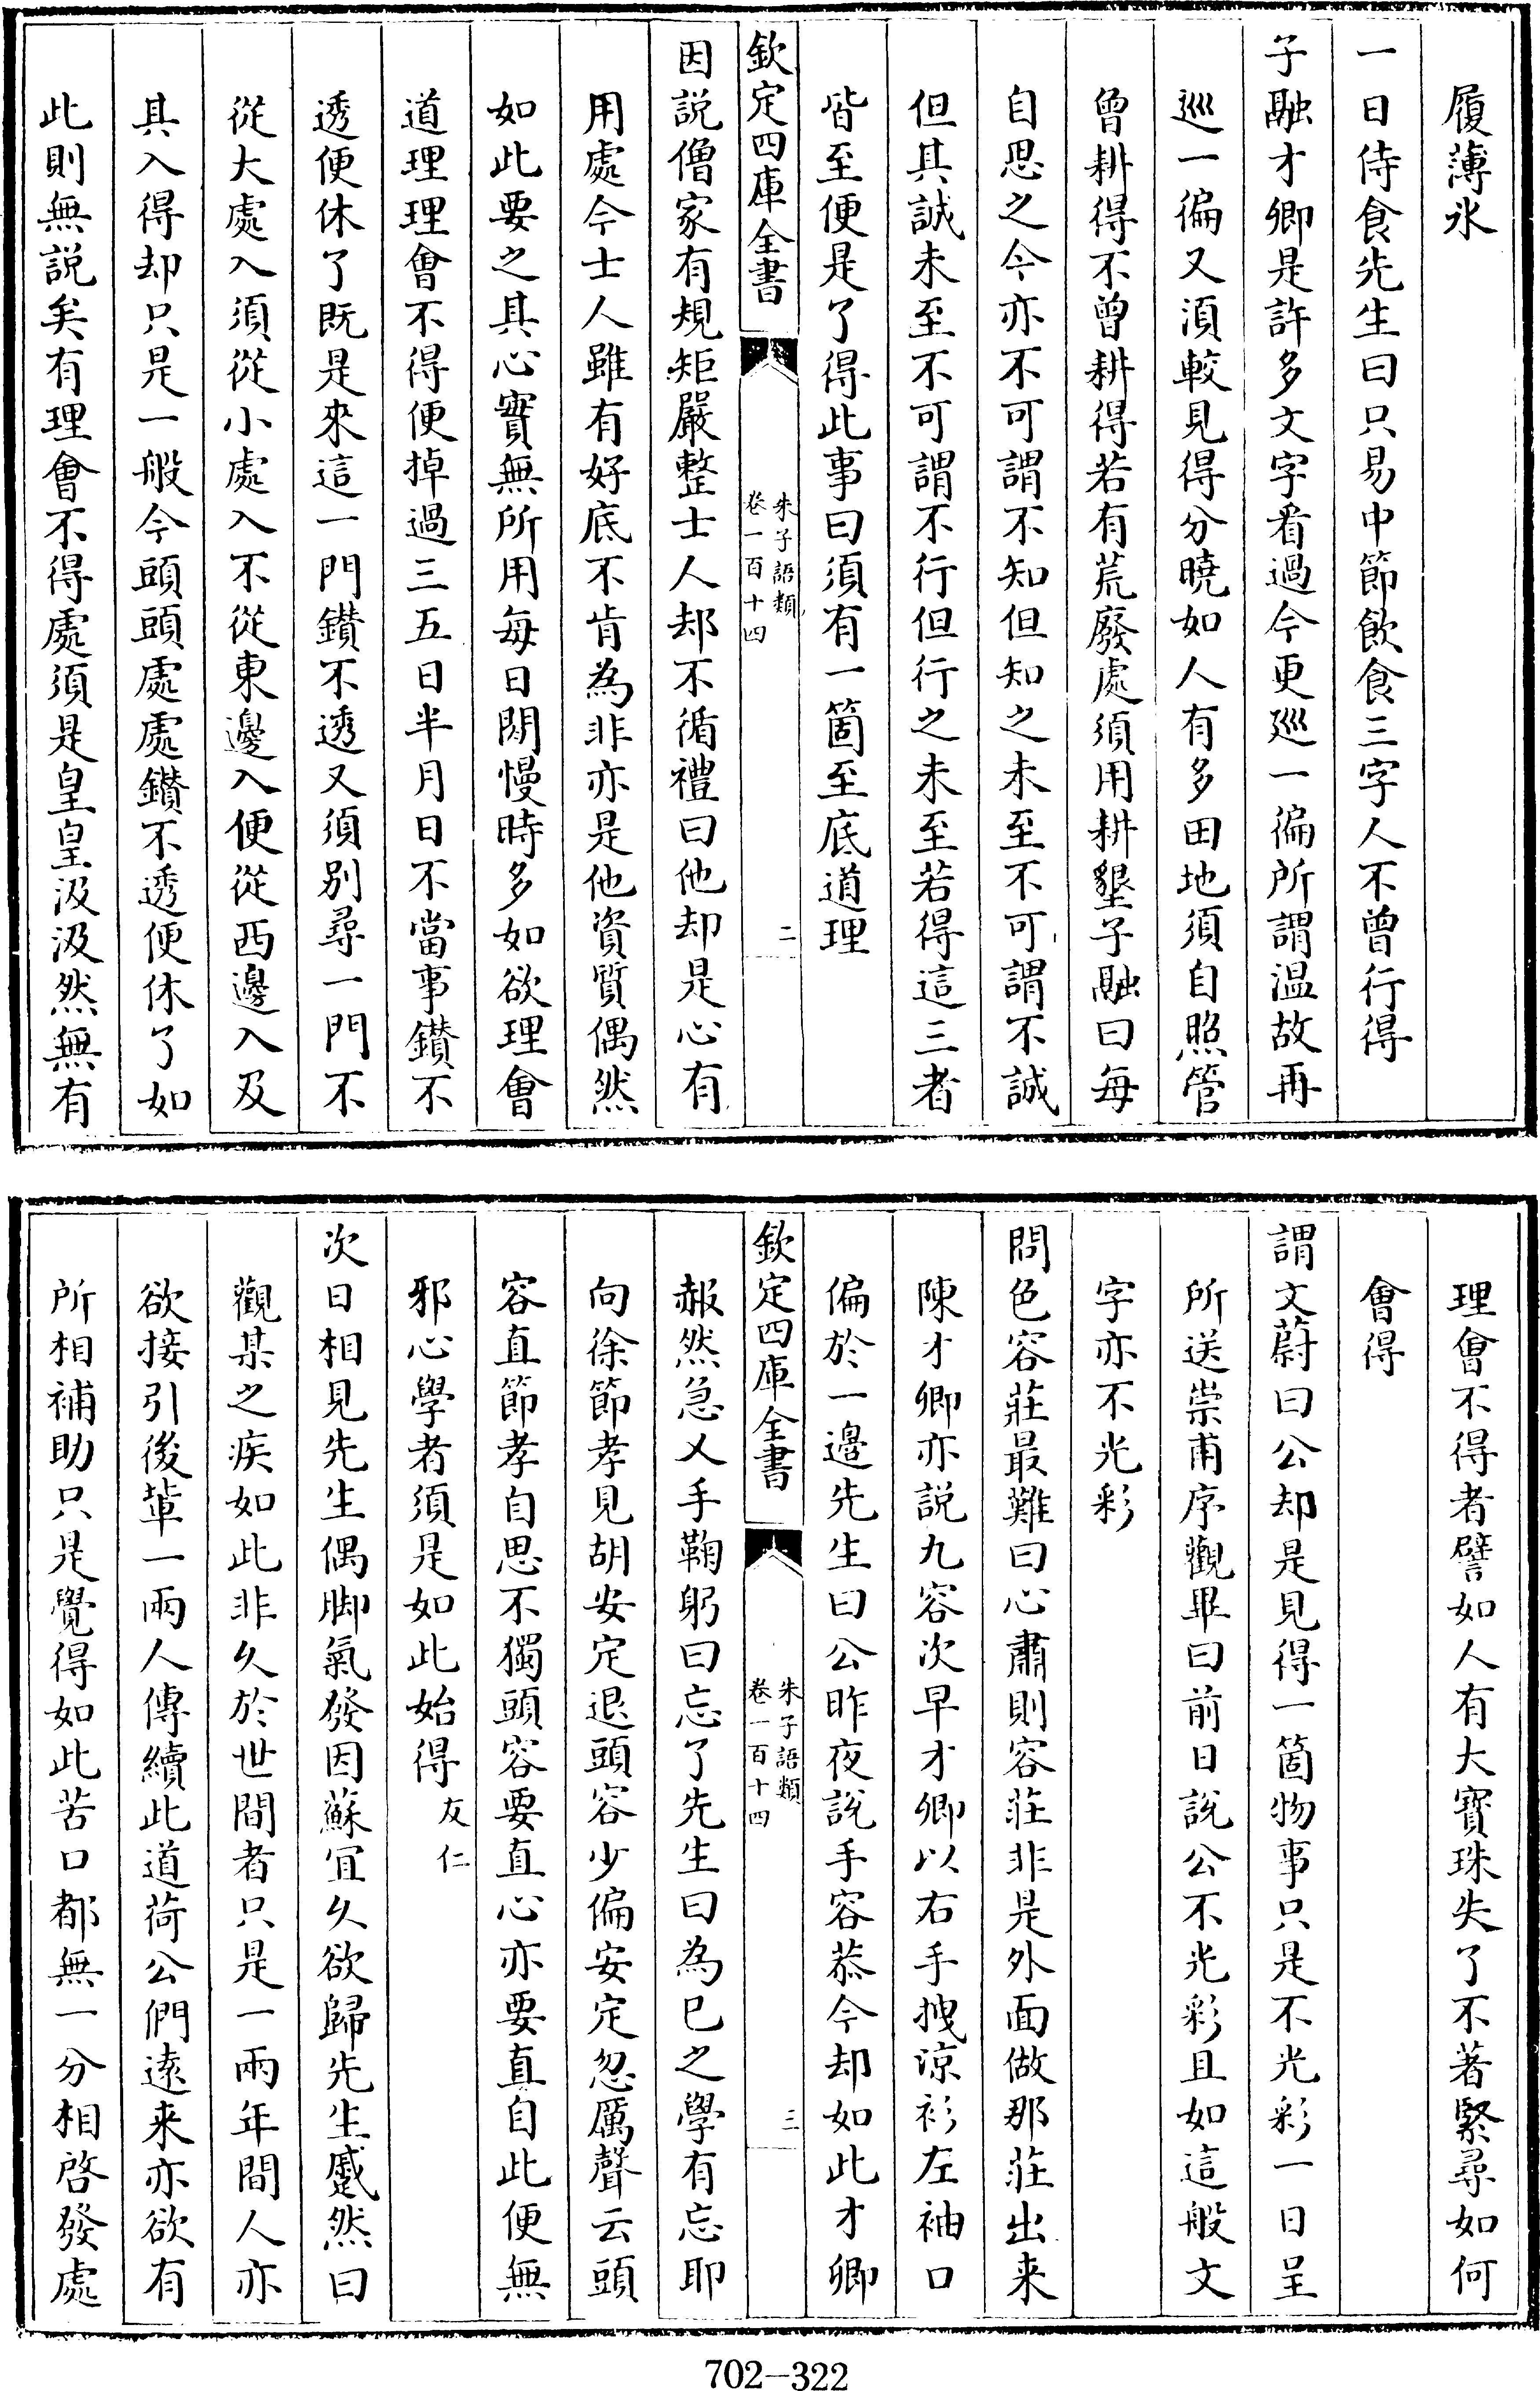 履薄氷
一日侍食先生曰只易中節飲食三字人不曾行得
子融才卿是許多文字看過今更巡一徧所謂温故再
巡一徧又湏較見得分曉如人有多田地須自照管
曾耕得不曾耕得若有荒廢處須用耕墾子融曰每
自思之今亦不可謂不知但知之未至不可謂不誠
但其誠未至不可謂不行但行之未至若得這三者
皆至便是了得此事曰須有一箇至底道理
欽定四庫全書
朱子語類
卷一百十四
二
因説僧家有規矩嚴整士人却不循禮曰他却是心有
用處今士人雖有好底不肯為非亦是他資質偶然
如此要之其心實無所用每日閒慢時多如欲理會
道理理會不得便掉過三五日半月日不當事鑚不
透便休了既是來這一門鑚不透又須别尋一門不
從大處入須從小處入不從東邊入便從西邊入及
其入得却只是一般今頭頭處處鑚不透便休了如
此則無説矣有理會不得處須是皇皇汲汲然無有
理會不得者譬如人有大寶珠失了不著緊尋如何
會得
謂文蔚曰公却是見得一箇物事只是不光彩一日呈
所送崇甫序觀畢曰前日説公不光彩且如這般文
字亦不光彩
問色容莊最難曰心肅則容莊非是外面做那莊出来
陳才卿亦説九容次早才卿以右手拽凉衫左袖口
偏於一邊先生曰公昨夜説手容恭今却如此才卿
欽定四庫全書
朱子語類
卷一百十四
三
赧然急乂手鞠躬曰忘了先生曰為已之學有忘耶
向徐節孝見胡安定退頭容少偏安定忽厲聲云頭
容直節孝自思不獨頭容要直心亦要直自此便無
邪心學者須是如此始得友仁
次日相見先生偶脚氣發因蘇宜久欲歸先生蹙然曰
觀某之疾如此非久於世間者只是一兩年間人亦
欲接引後輩一兩人傳續此道荷公們遠来亦欲有
所相補助只是覺得如此苦口都無一分相啓發處
702-322